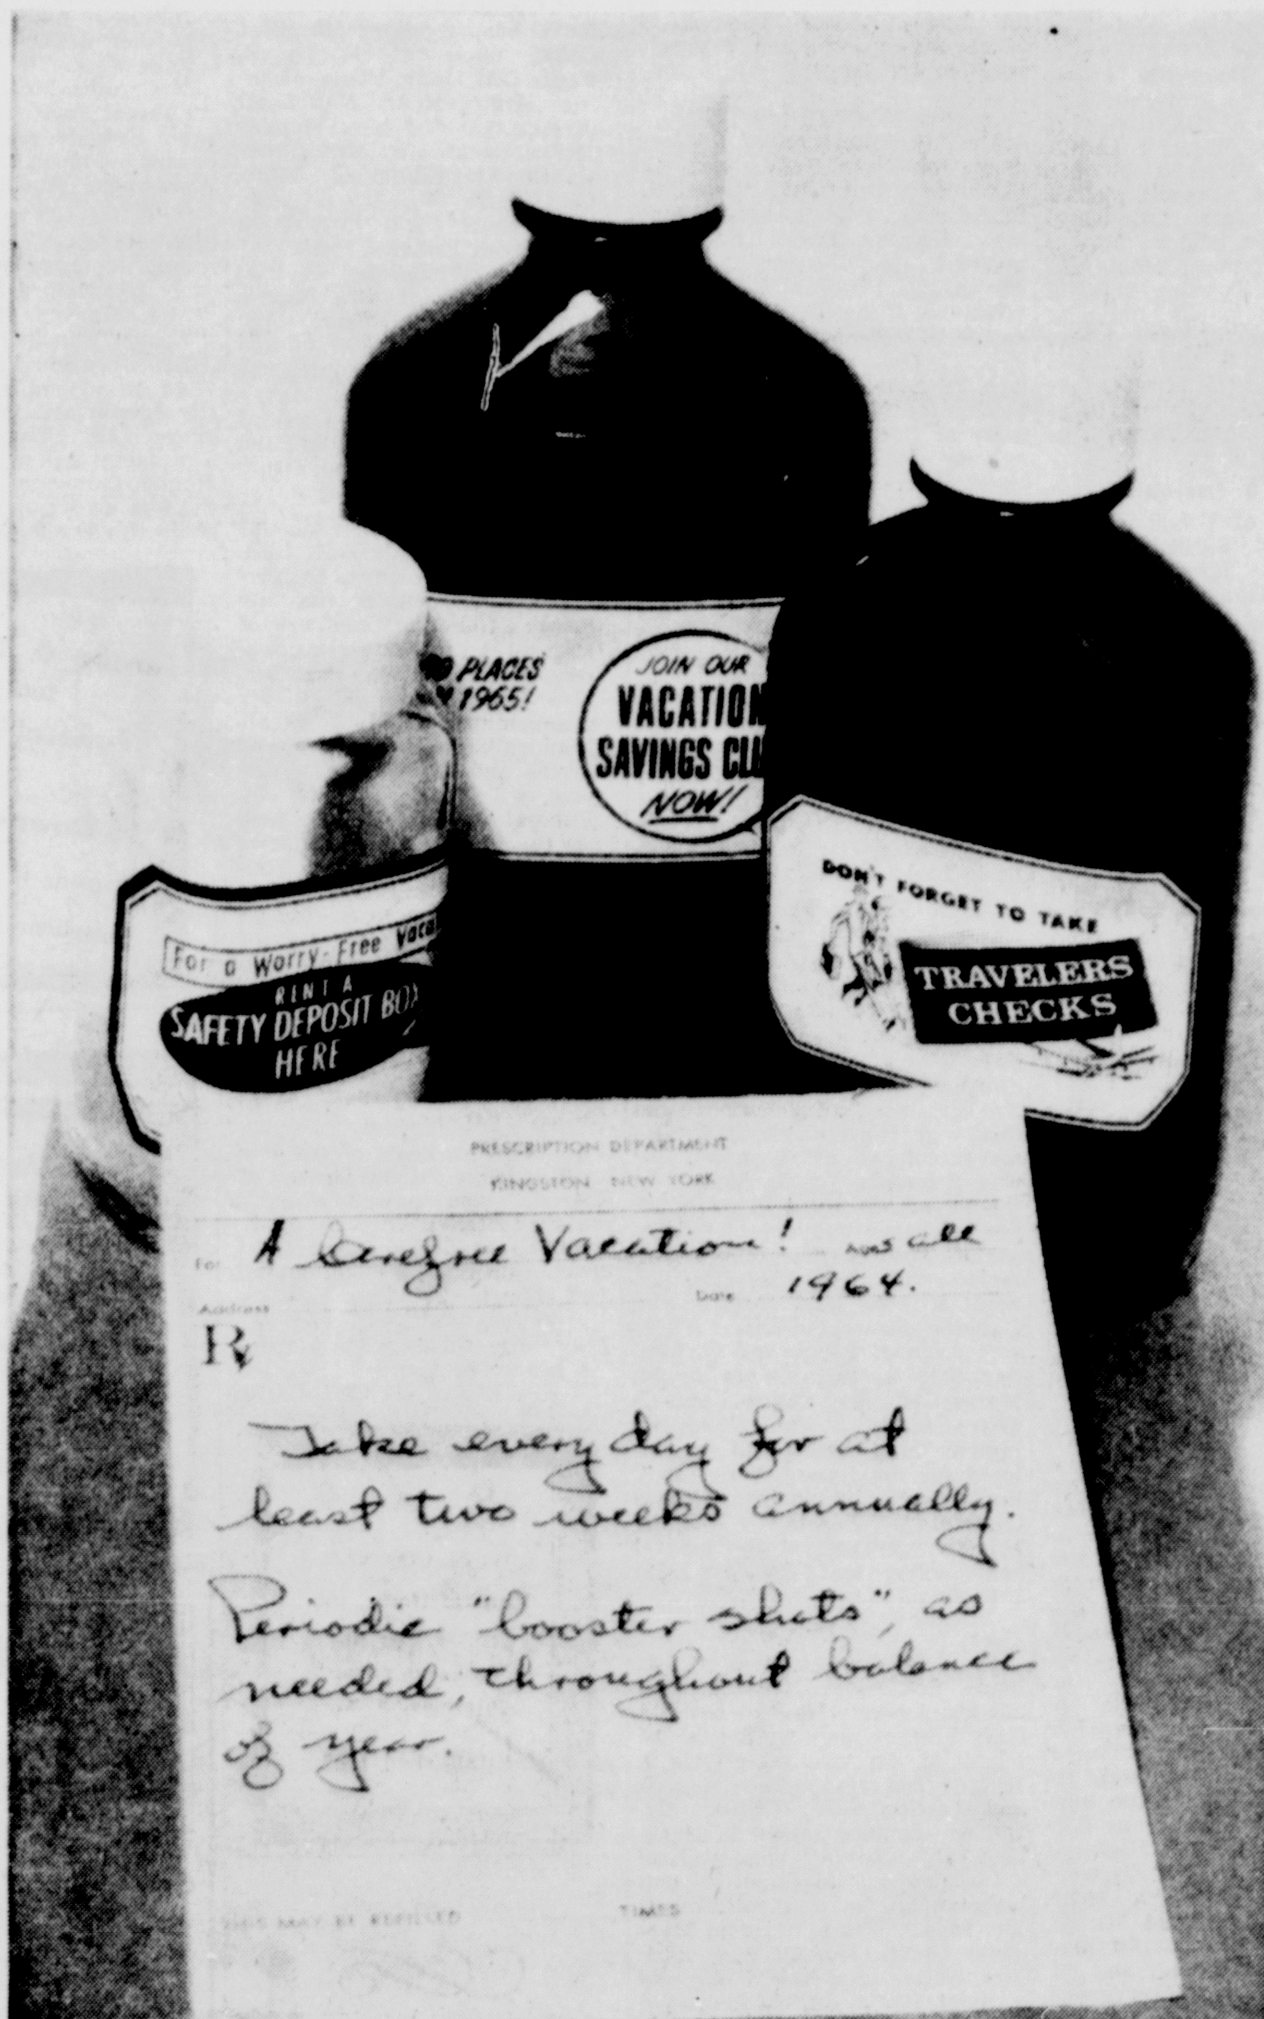 PLACES
1965!
JOIN OUR
VACATION
SAVINGS CLU
NOW!
DON'T FORGET TO TAKE
TRAVELERS
CHECKS
For a Worry-Free Vaca
RENT A
SAFETY DEPOSIT BOX
HERE
PRESCRIPTION DEPARTMENT
KINGSTON NEW YORK
For A Carefree Vacation! AGES all
Address Date 1964.
Rx
Take every day for at
least two weeks annually.
Periodic "booster shots", as
needed, throughout balance
of year.
THIS MAY BE REFILLED TIMES